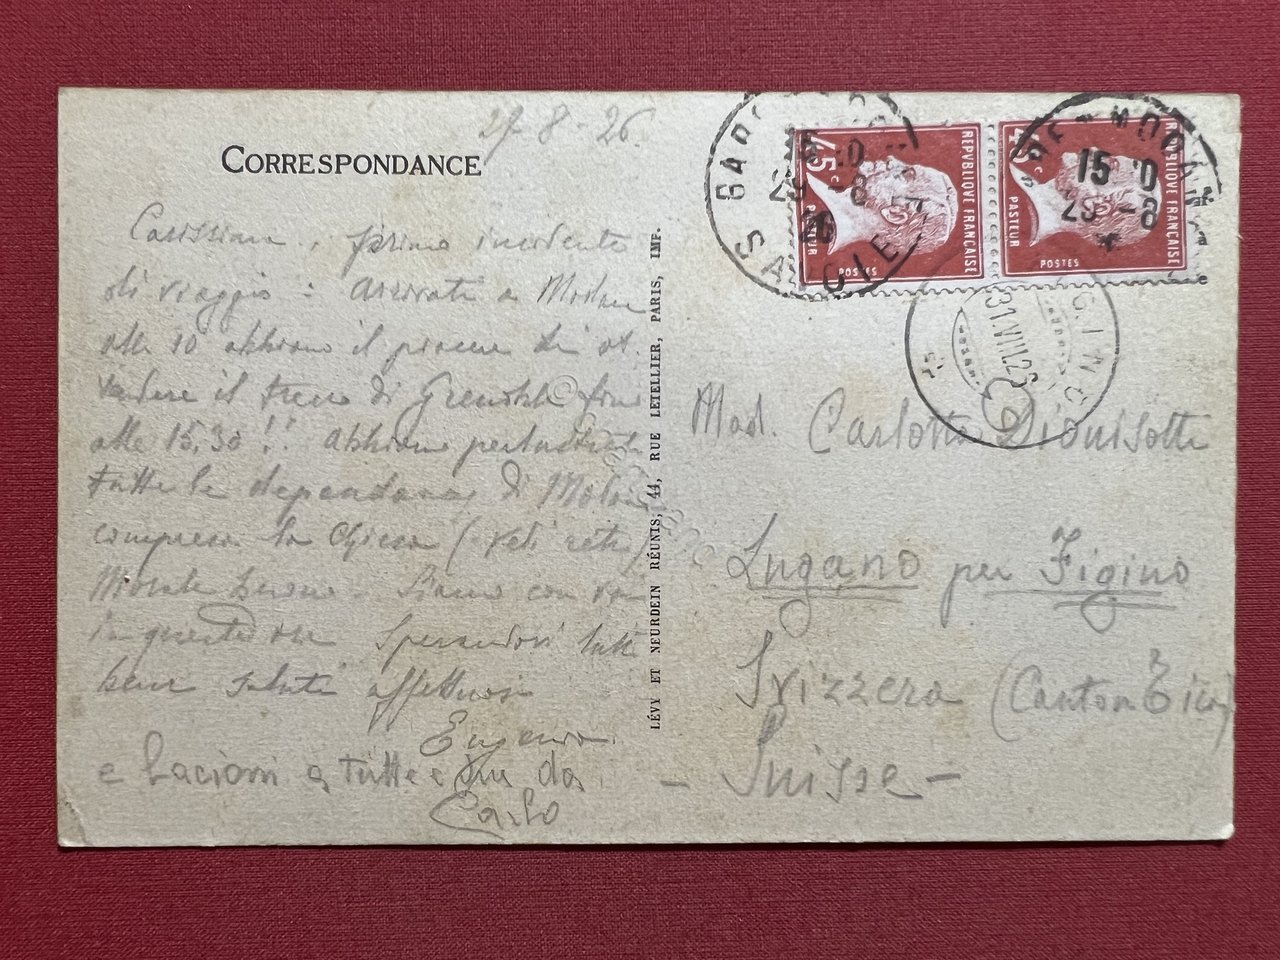 27-8-26.
CORRESPONDANCE
Carissima primo incidente
di viaggio: arrivati a Modane
alle 10 abbiamo il piacere di at-
tendere il treno di Grenoble fino
alle 15,30!! abbiamo
tutte le di
compresa la Chiesa (vedi retro)
Morale buono. Siamo con voi
in queste ore Sperandovi tutti
bene saluti affettuosi
Eugenia
e bacioni a tutte e due da
Carlo
LÉVY ET NEURDEIN RÉUNIS, 44, RUE LETELLIER, PARIS, IMP.
45c REPUBLIQUE FRANÇAISE
PASTEUR
POSTES
45c REPUBLIQUE FRANÇAISE
PASTEUR
POSTES
GARE
SAVOIE
29-8
26
MODANE
15 0
29-8
31.VIII.26
Mad. Carlotta
Lugano per Figino
Svizzera (Canton Tici
- Suisse -